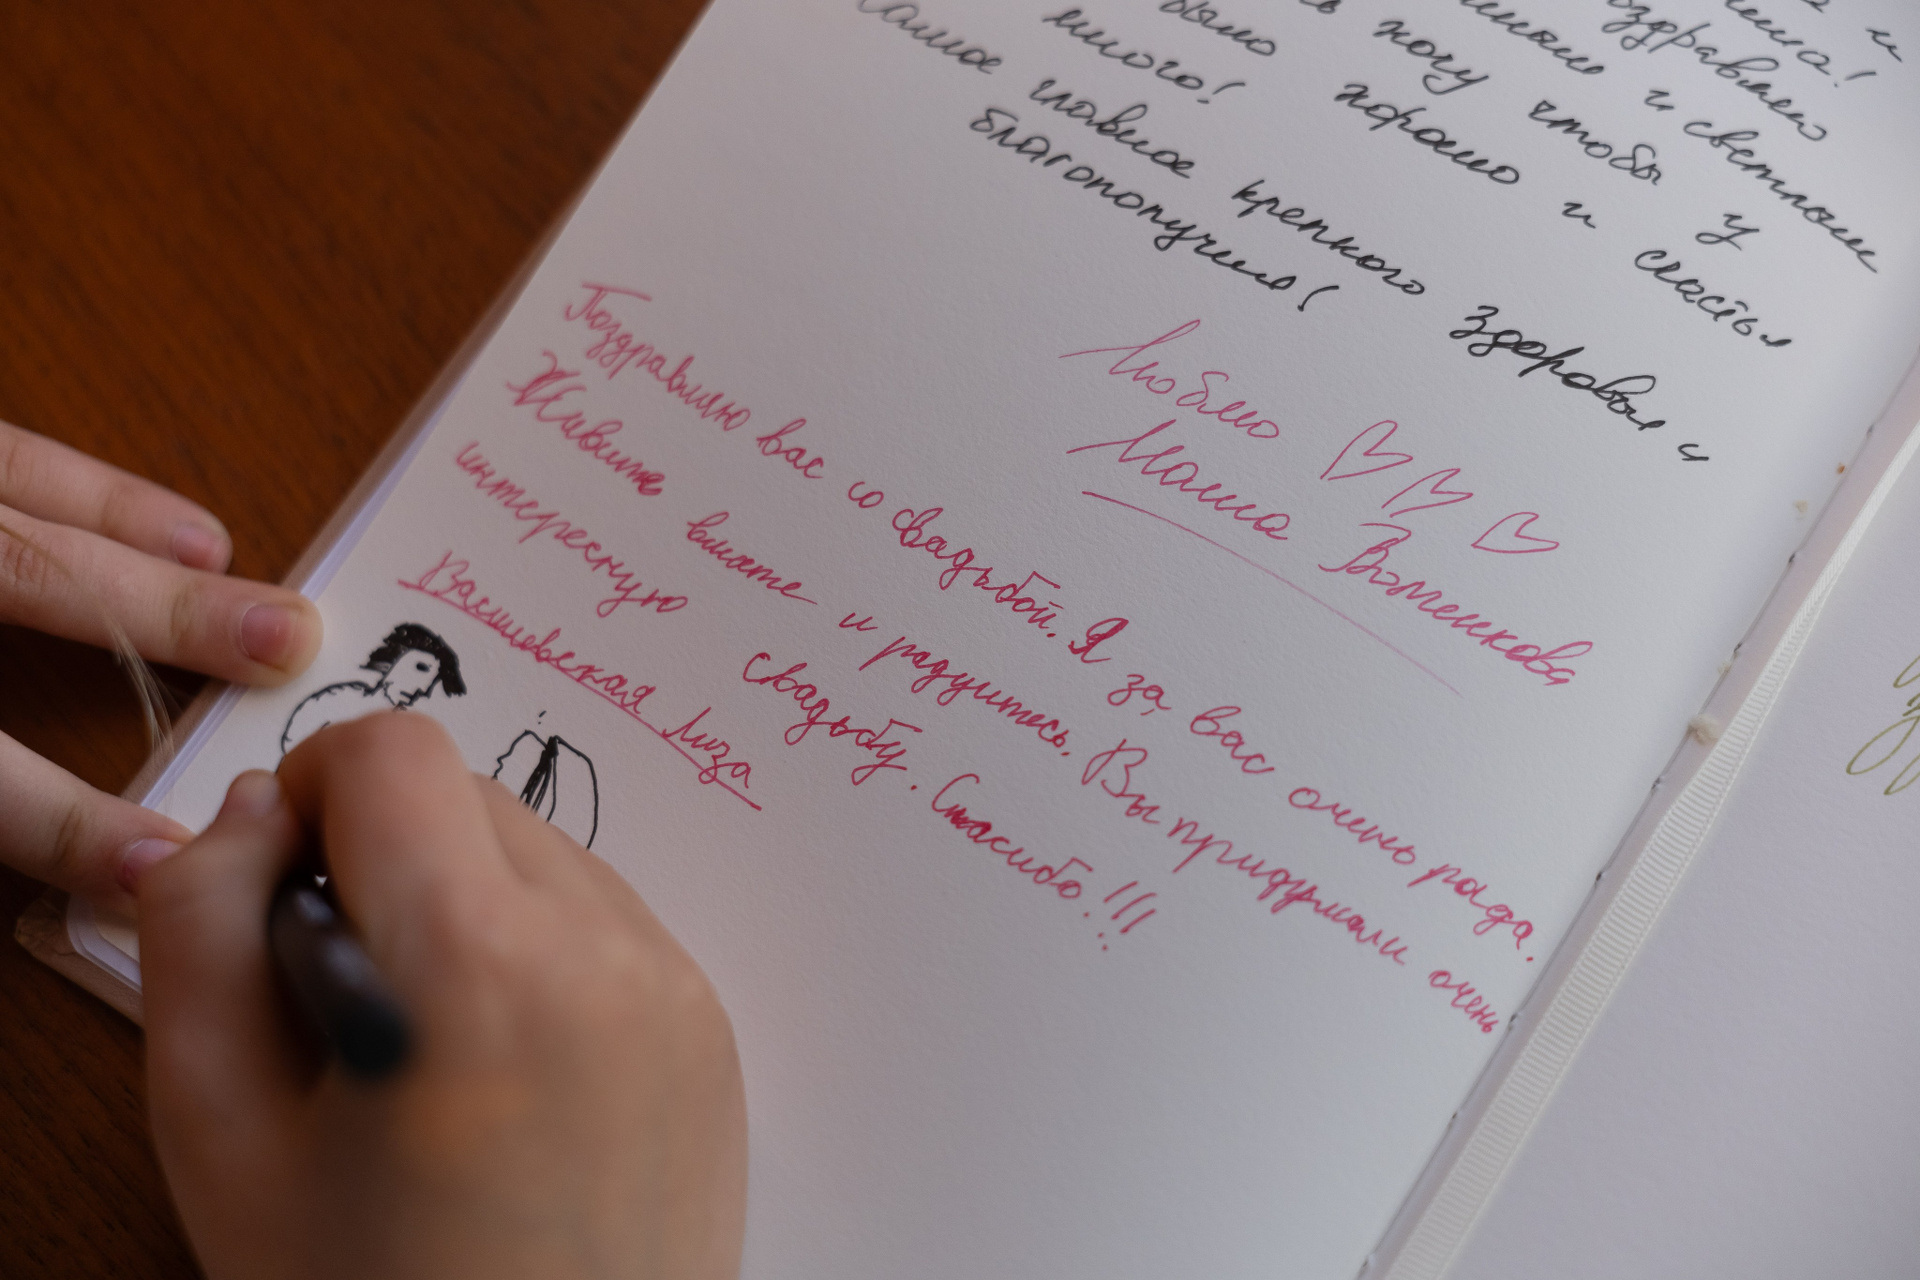 поздравляю
и светлыми
хочу чтобы у
было хорошо и счастья
много!
Самое главное крепкого здоровья и
благополучия!
Люблю
Маша
Поздравляю вас со свадьбой. Я за вас очень рада.
Живите вместе и радуйтесь. Вы придумали очень
интересную свадьбу. Спасибо!!!
Василевская Лиза